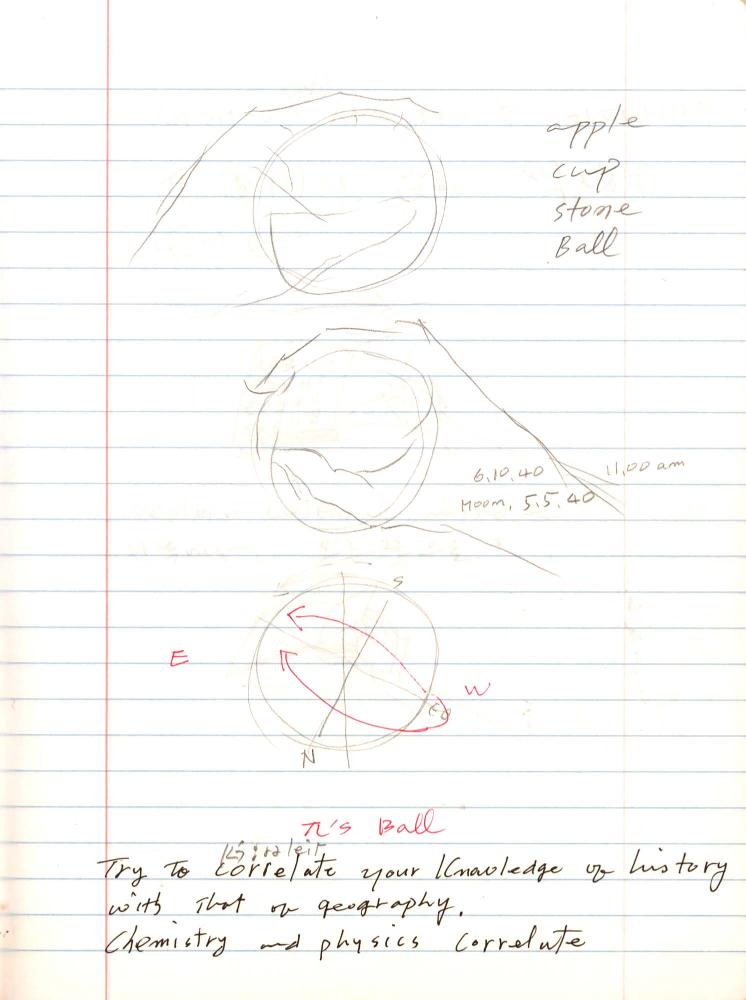 apple
cup
stone
Ball
6.10.40 11.00 am
Moom, 5.5.40
S
E
W
EQ
N
π's Ball
Try to correlate your Knowledge of history
with that of geography.
Chemistry and physics correlate